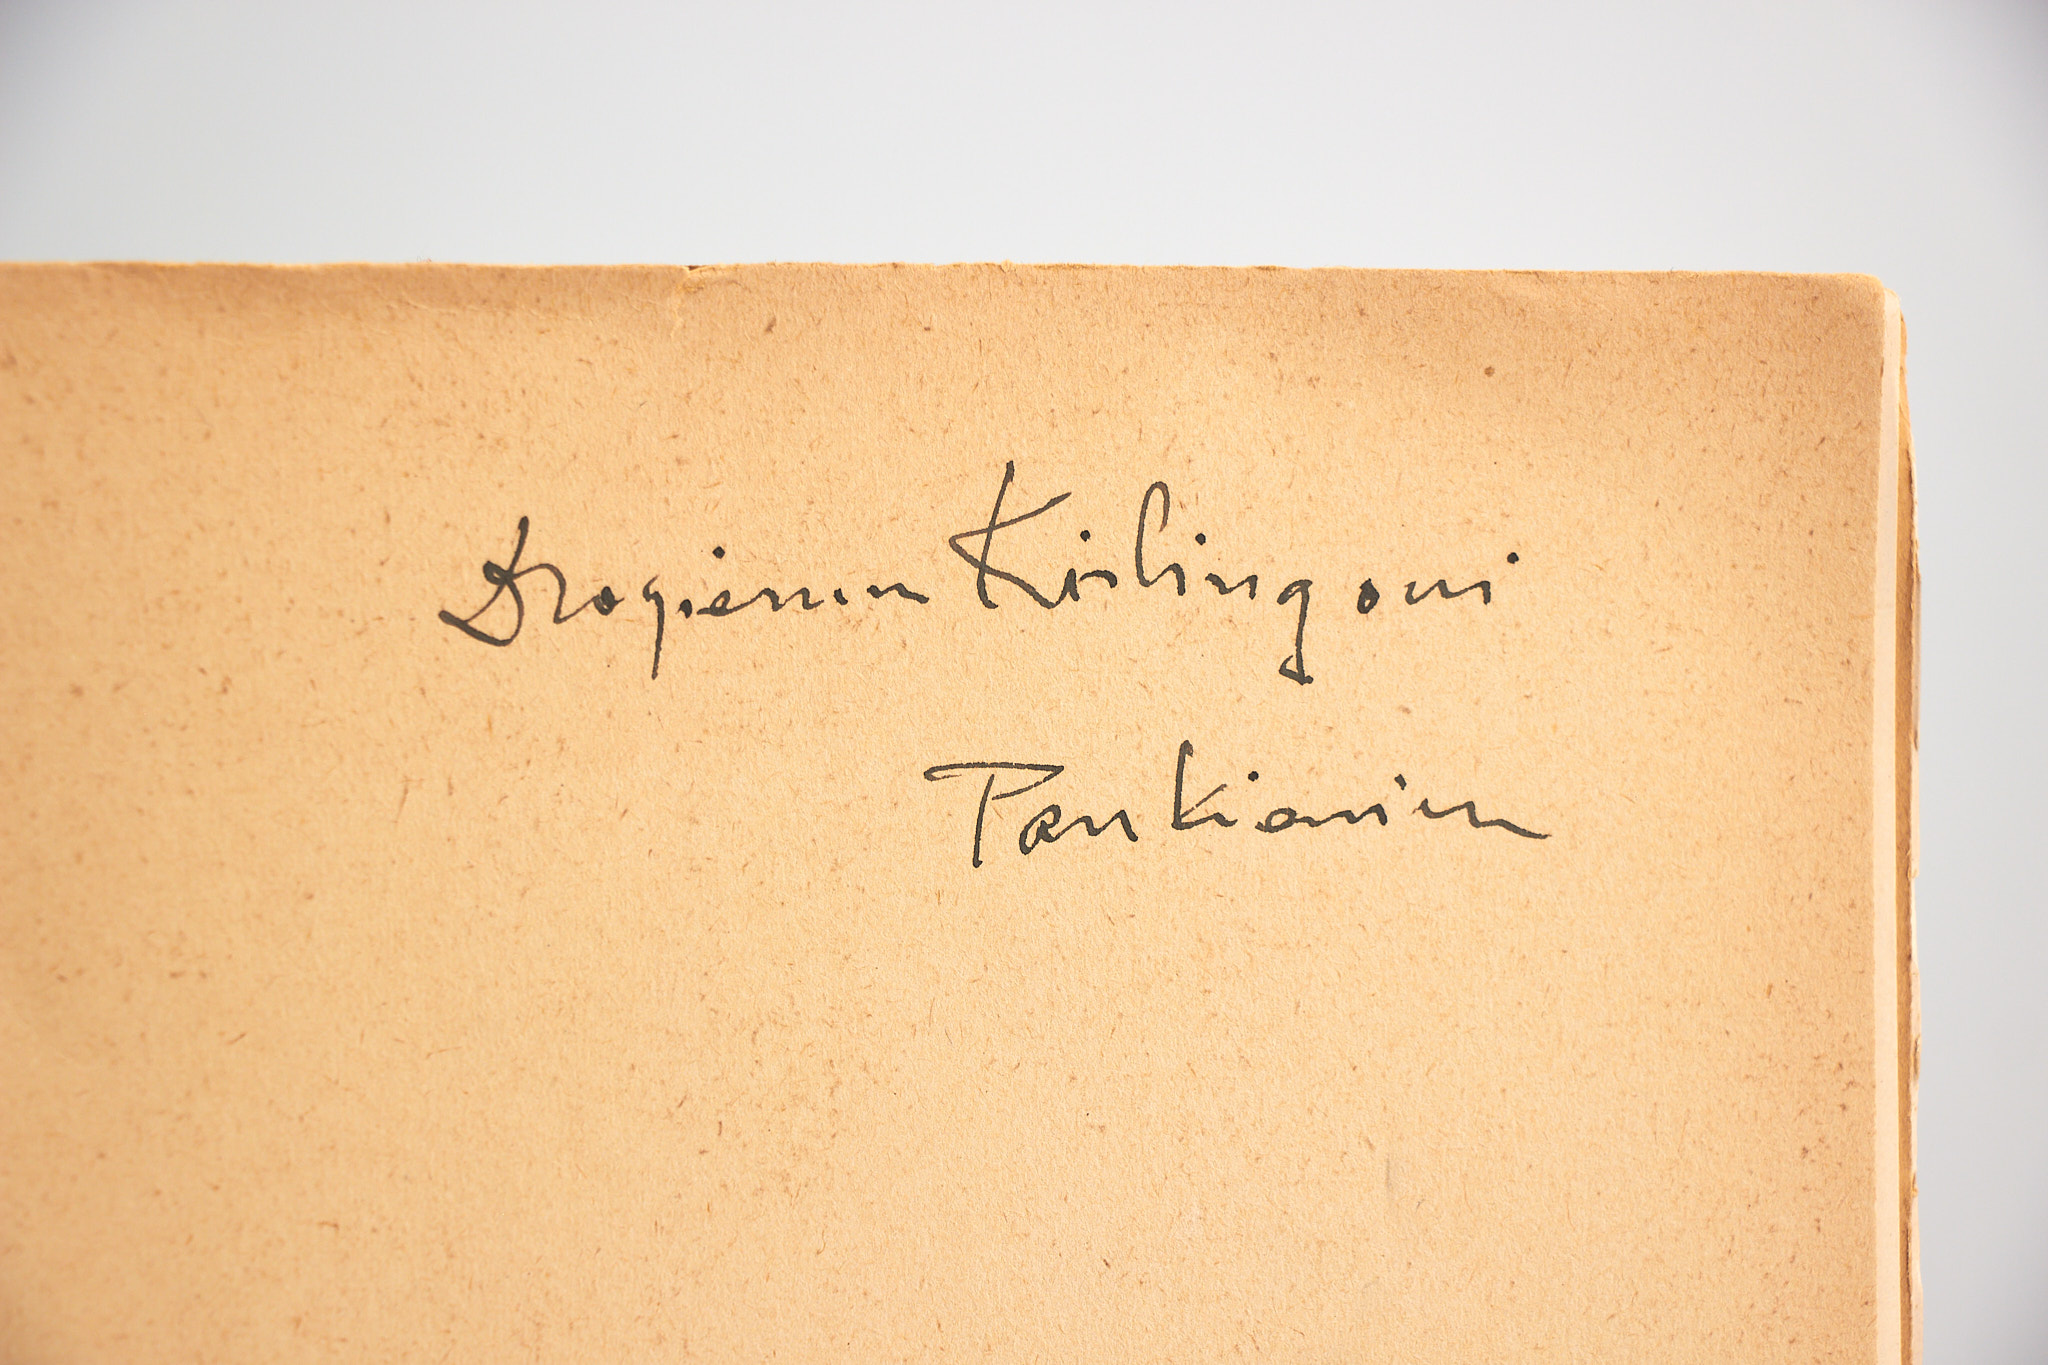 Drogiemu Kislingowi
Pankiewicz